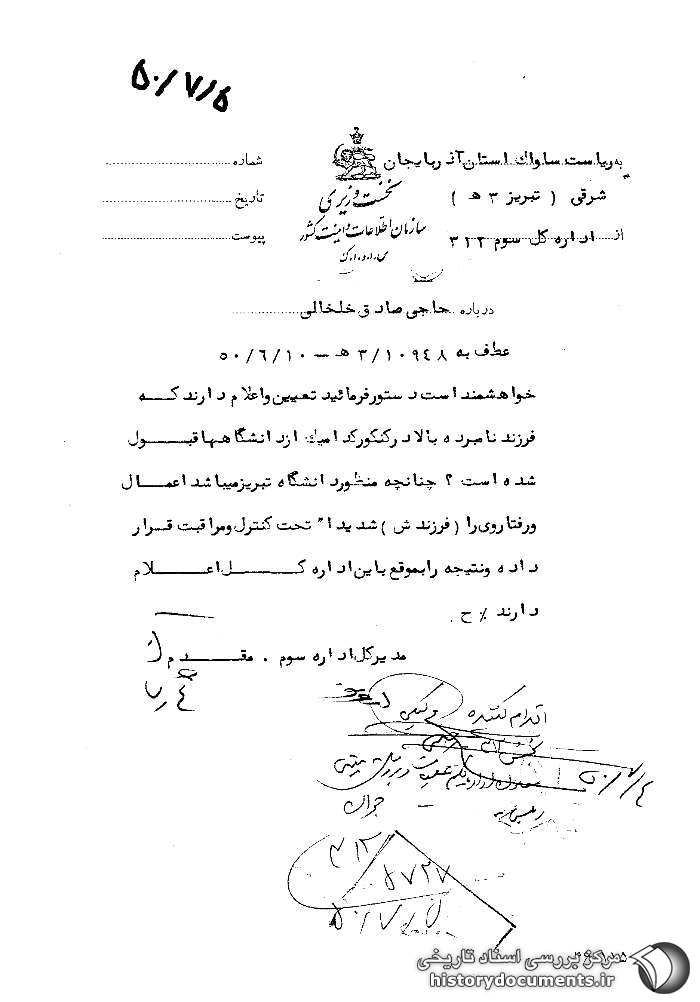 ۵۰/۷/۵
به ریاست ساواک استان آذربایجان
شرقی ( تبریز ۳ ه )
از اداره کل سوم ۳۱۲
نخست وزیری
سازمان اطلاعات و امنیت کشور
س.ا.و.ا.ک
شماره
تاریخ
پیوست
درباره حاجی صادق خلخالی
عطف به ۳/۱۰۹۴۸ ه – ۵۰/۶/۱۰
خواهشمند است دستور فرمائید تعیین و اعلام دارند که
فرزند نامبرده بالا در کنکور کدامیک از دانشگاهها قبول
شده است ؟ چنانچه منظور دانشگاه تبریز میباشد اعمال
و رفتار وی را ( فرزندش ) شدیدا" تحت کنترل و مراقبت قرار
داده و نتیجه را بموقع باین اداره کل اعلام
دارند ٪ ح .
مدیر کل اداره سوم . مقدم
اقدام کننده
۵۰/۷/۴
۳۱۲
۵۷۲۷
۵۰/۷/۵
مرکز بررسی اسناد تاریخی
historydocuments.ir